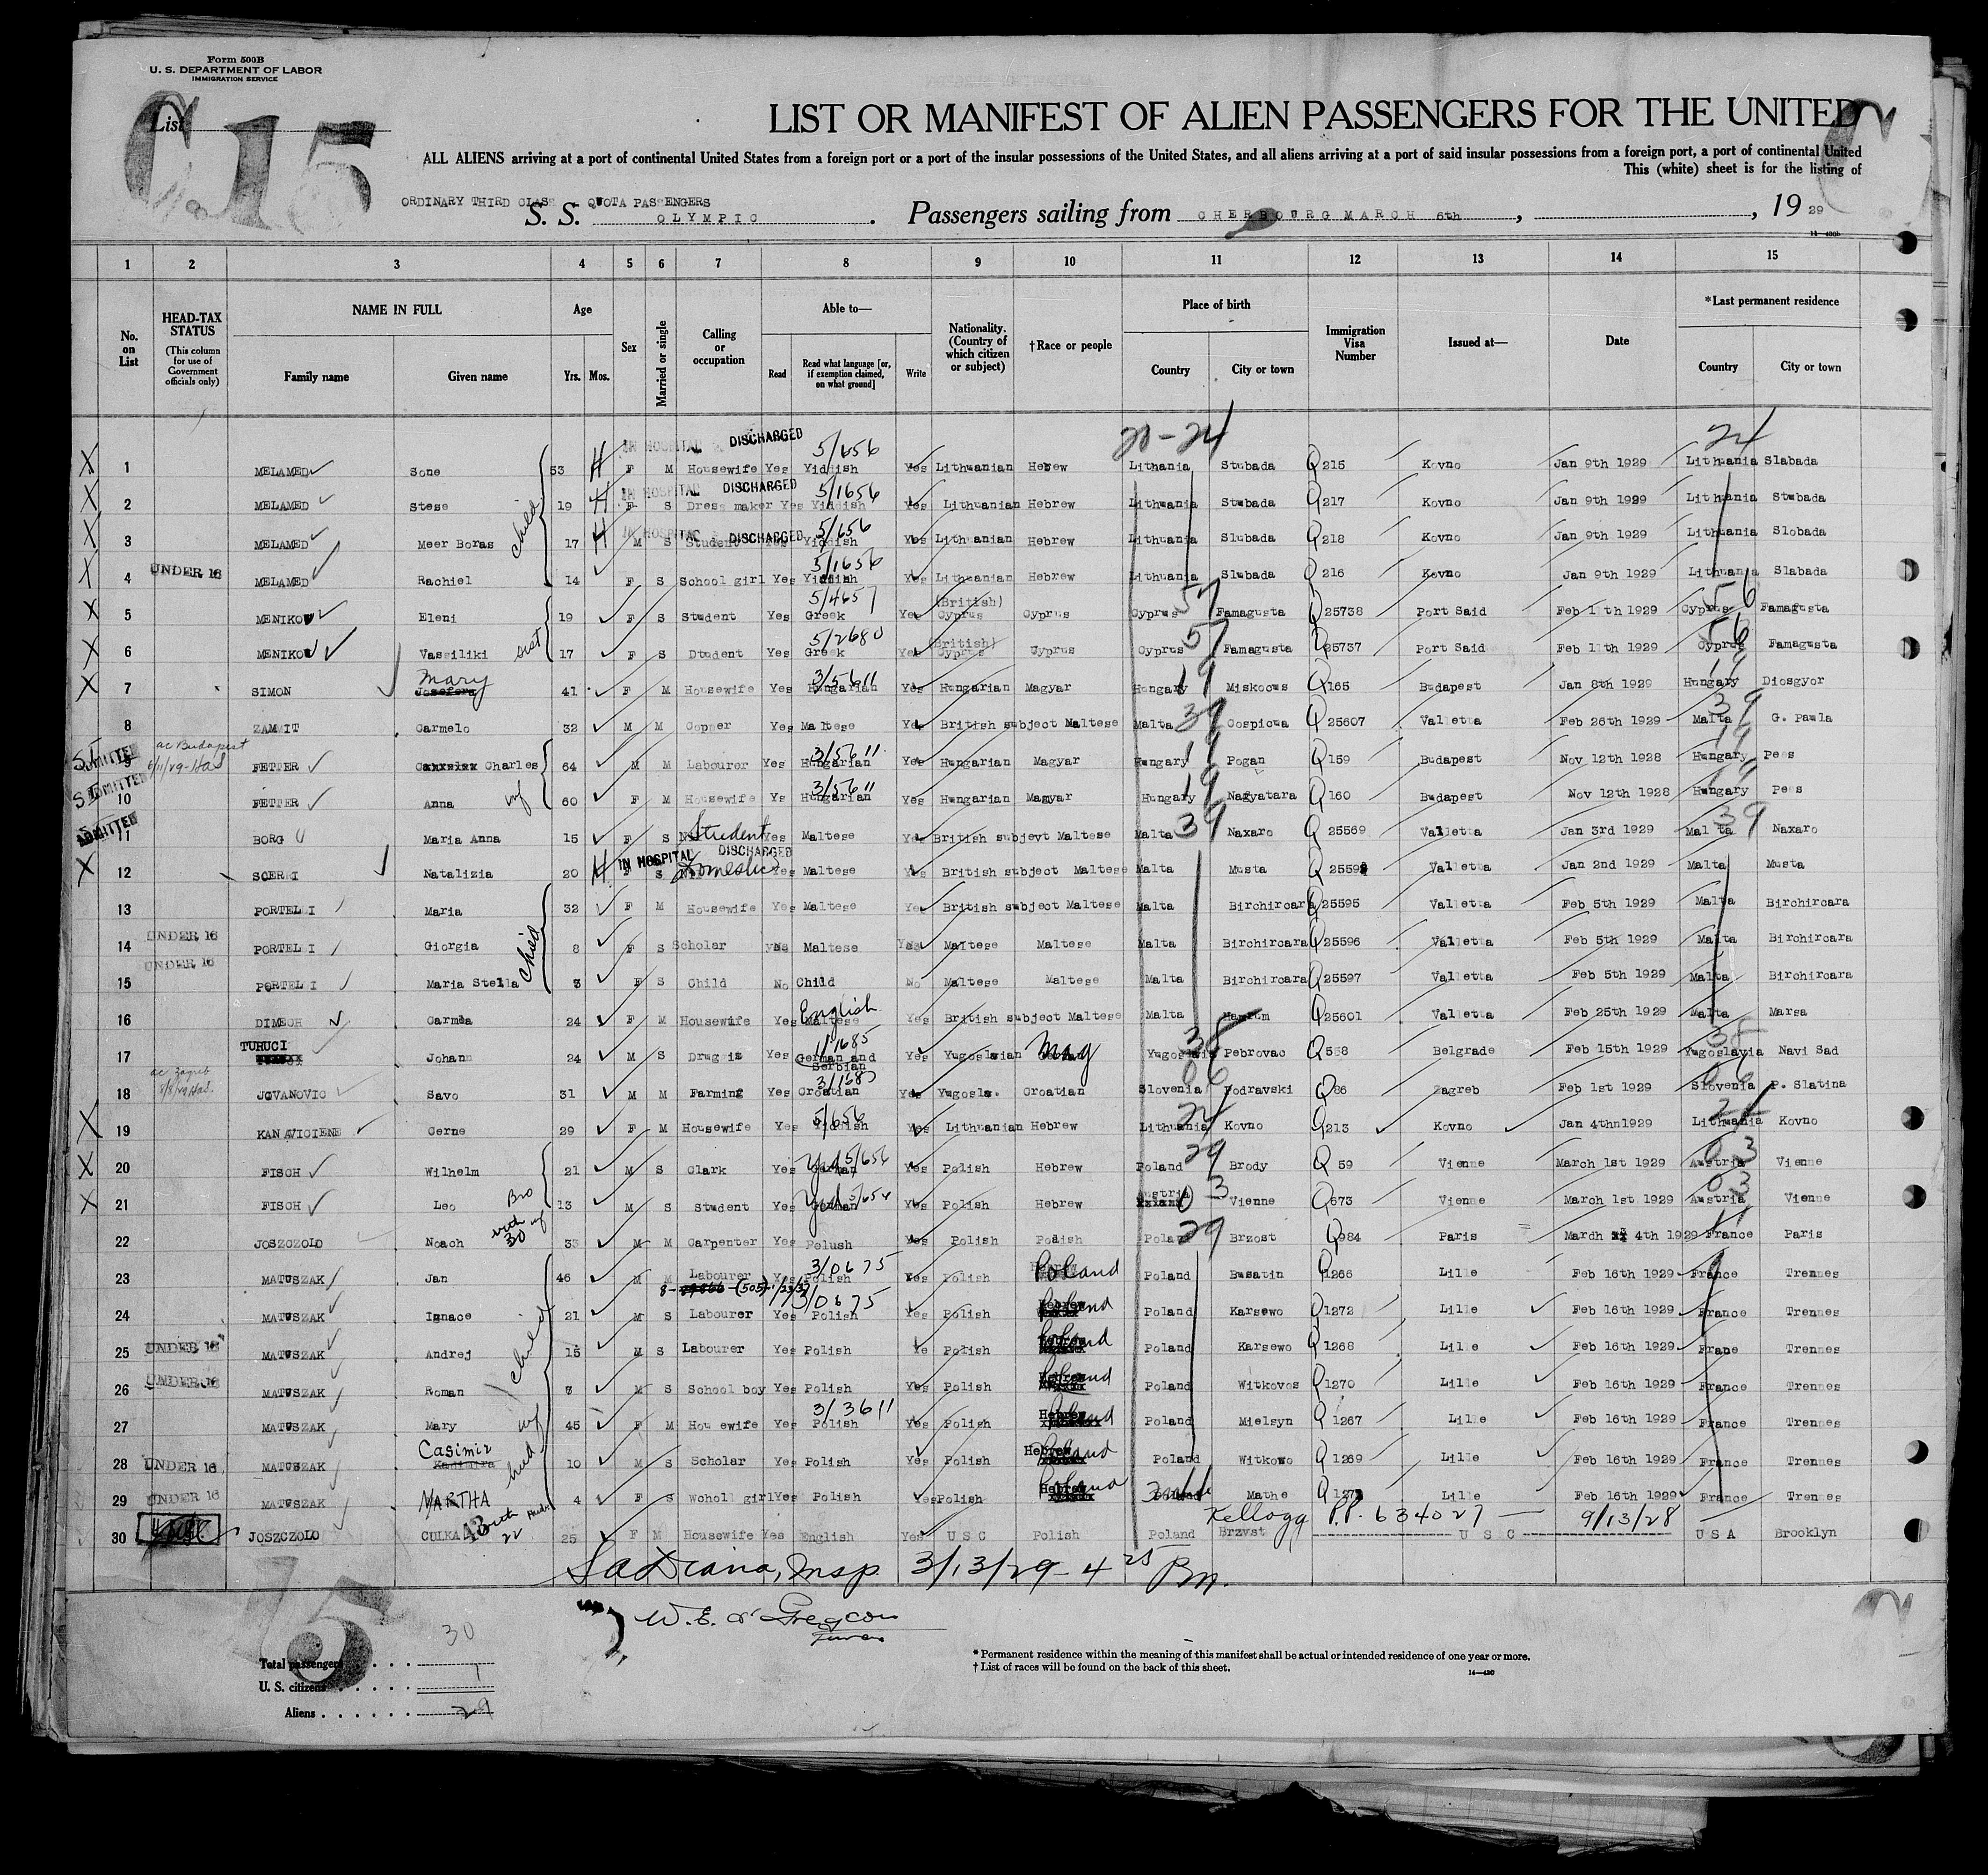 Form 500B
U. S. DEPARTMENT OF LABOR
IMMIGRATION SERVICE
List
C 15
LIST OR MANIFEST OF ALIEN PASSENGERS FOR THE UNITED
ALL ALIENS arriving at a port of continental United States from a foreign port or a port of the insular possessions of the United States, and all aliens arriving at a port of said insular possessions from a foreign port, a port of continental United
This (white) sheet is for the listing of
ORDINARY THIRD CLASS QUOTA PASSENGERS
S. S. OLYMPIC. Passengers sailing from CHERBOURG MARCH 6th, , 19 29
1 2 3 4 5 6 7 8 9 10 11 12 13 14 15
No. on List
HEAD-TAX STATUS (This column for use of Government officials only)
NAME IN FULL Family name Given name
Age Yrs. Mos.
Sex
Married or single
Calling or occupation
Able to— Read Read what language [or, if exemption claimed, on what ground] Write
Nationality. (Country of which citizen or subject)
†Race or people
Place of birth Country City or town
Immigration Visa Number
Issued at—
Date
*Last permanent residence Country City or town
20-24 24
1 MELAMED Sone 53 H F M IN HOSPITAL DISCHARGED Housewife Yes Yiddish 5/656 Yes Lithuanian Hebrew Lithania Stubada Q 215 Kovno Jan 9th 1929 Lithuania Slabada
2 MELAMED Stese 19 H F S IN HOSPITAL DISCHARGED Dress maker Yes Yiddish 5/1656 Yes Lithuanian Hebrew Lithuania Stubada Q 217 Kovno Jan 9th 1929 Lithuania Stubada
3 MELAMED Meer Boras child 17 H M S IN HOSPITAL DISCHARGED Student Yes Yiddish 5/656 Yes Lithuanian Hebrew Lithuania Slubada Q 218 Kovno Jan 9th 1929 Lithuania Slobada
4 UNDER 16 MELAMED Rachiel 14 F S School girl Yes Yiddish 5/1656 Yes Lithuanian Hebrew Lithuania Slubada Q 216 Kovno Jan 9th 1929 Lithuania Slabada
5 MENIKOU Eleni 19 F S Student Yes Greek 5/4657 Yes (British) Cyprus Cyprus Cyprus 57 Famagusta Q 25738 Port Said Feb 11th 1929 Cyprus 56 Famagusta
6 MENIKOU Vassiliki sist 17 F S Dtudent Yes Greek 5/2680 Yes (British) Cyprus Cyprus Cyprus 57 Famagusta Q 25737 Port Said Feb 11th 1929 Cyprus 56 Famagusta
7 SIMON Mary Josefern 41 F M Housewife Yes Hungarian 3/5611 Yes Hungarian Magyar Hungary 19 Miskocws Q 165 Budapest Jan 8th 1929 Hungary 19 Diosgyor
8 ZAMMIT Carmelo 32 M M Copper Yes Maltese Yes British subject Maltese Malta 39 Cospicua Q 25607 Valletta Feb 26th 1929 Malta 39 G. Pawla
9 ADMITTED ac Budapest FETTER Charles 64 M M Labourer Yes Hungarian 3/5611 Yes Hungarian Magyar Hungary 19 Pogan Q 159 Budapest Nov 12th 1928 Hungary 19 Pees
10 ADMITTED FETTER Anna wf 60 F M Housewife Ys Hungarian 3/5611 Yes Hungarian Magyar Hungary 19 Nagyatara Q 160 Budapest Nov 12th 1928 Hungary 19 Pees
11 ADMITTED BORG Maria Anna 15 F S Student Yes Maltese Yes British subjevt Maltese Malta 39 Naxaro Q 25569 Valletta Jan 3rd 1929 Malta 39 Naxaro
12 SCERRI Natalizia 20 H F S IN HOSPITAL DISCHARGED Domestic Yes Maltese Yes British subject Maltese Malta Musta Q 2559 Valletta Jan 2nd 1929 Malta Musta
13 PORTELLI Maria 32 F M Housewife Yes Maltese Yes British subject Maltese Malta Birchircara Q 25595 Valletta Feb 5th 1929 Malta Birchircara
14 UNDER 16 PORTELLI Giorgia child 8 F S Scholar yes Maltese Yes Maltese Maltese Malta Birchircara Q 25596 Valletta Feb 5th 1929 Malta Birchircara
15 UNDER 16 PORTELLI Maria Stella 3 F S Child No Child No Maltese Maltese Malta Birchircara Q 25597 Valletta Feb 5th 1929 Malta Birchircara
16 DIMECH Carmela 24 F M Housewife Yes English Maltese Yes British subject Maltese Malta Hamrum Q 25601 Valletta Feb 25th 1929 Malta Marsa
17 TURUCI Johann 24 M S Drugis Yes German and Serbian 11/1685 Yes Yugoslavian Mag Yugoslavia 38 Pebrovac Q 558 Belgrade Feb 15th 1929 Yugoslavia 38 Navi Sad
18 ac Zagreb JOVANOVIC Savo 31 M M Farming Yes Croatian 3/1685 Yes Yugosla. Croatian Slovenia 06 Podravski Q 86 Zagreb Feb 1st 1929 Slovenia 06 P. Slatina
19 KANAVICIENE Gerne 29 F M Housewife Yes Yiddish 5/656 Yes Lithuanian Hebrew Lithuania 24 Kovno Q 213 Kovno Jan 4thn1929 Lithuania 24 Kovno
20 FISCH Wilhelm 21 M S Clark Yes German Yid 5/656 Yes Polish Hebrew Poland 29 Brody Q 59 Vienne March 1st 1929 Austria 03 Vienne
21 FISCH Leo Bro 13 M S Student Yes German Yid 5/656 Yes Polish Hebrew Austria 03 Vienne Q 673 Vienne March 1st 1929 Austria 03 Vienne
22 JOSZCZOLD Noach with 30 wf 33 M M Carpenter Yes Polush Yes Polish Polish Poland 29 Brzost Q 984 Paris Mardh 4th 1929 France 11 Paris
23 MATUSZAK Jan 46 M M Labourer Yes Polish 3/0675 Yes Polish Poland Poland Busatin Q 1266 Lille Feb 16th 1929 France Trennes
24 MATUSZAK Ignace 21 M S Labourer Yes Polish 3/0675 Yes Polish Hebrew Poland Poland Karsewo Q 1272 Lille Feb 16th 1929 France Trennes
25 UNDER 16 MATUSZAK Andrej child 15 M S Labourer Yes Polish Ye Polish Hebrew Poland Poland Karsewo Q 1268 Lille Feb 16th 1929 Frane Trennes
26 UNDER 16 MATUSZAK Roman M S School boy Yes Polish Yes Polish Hebrew Poland Poland Witkovos Q 1270 Lille Feb 16th 1929 France Trennes
27 MATUSZAK Mary wf 45 F M Hou ewife Yes Polish 3/3611 Yes Polish Hebrew Poland Poland Mielsyn Q 1267 Lille Feb 16th 1929 France Trennes
28 UNDER 16 MATUSZAK Casimir Kasimira child 10 M S Scholar Yes Polish Yes Polish Hebrew Poland Poland Witkowo Q 1269 Lille Feb 16th 1929 France Trennes
29 UNDER 16 MATUSZAK MARTHA 4 F S Wcholl girl Yes Polish Yes Polish Hebrew Poland Mathe Q 127 Lille Feb 16th 1929 France Trennes
30 JOSZCZOLD CULKA with 22 25 F M Housewife Yes English Yes U S C Polish Poland Brzvst Kellogg P.P. 634027 — U S C 9/13/28 — U S A Brooklyn
Insp. 3/13/29 4 25 Pm.
15
Total passengers 30
U. S. citizens 1
Aliens 29
*Permanent residence within the meaning of this manifest shall be actual or intended residence of one year or more.
†List of races will be found on the back of this sheet.
14—430